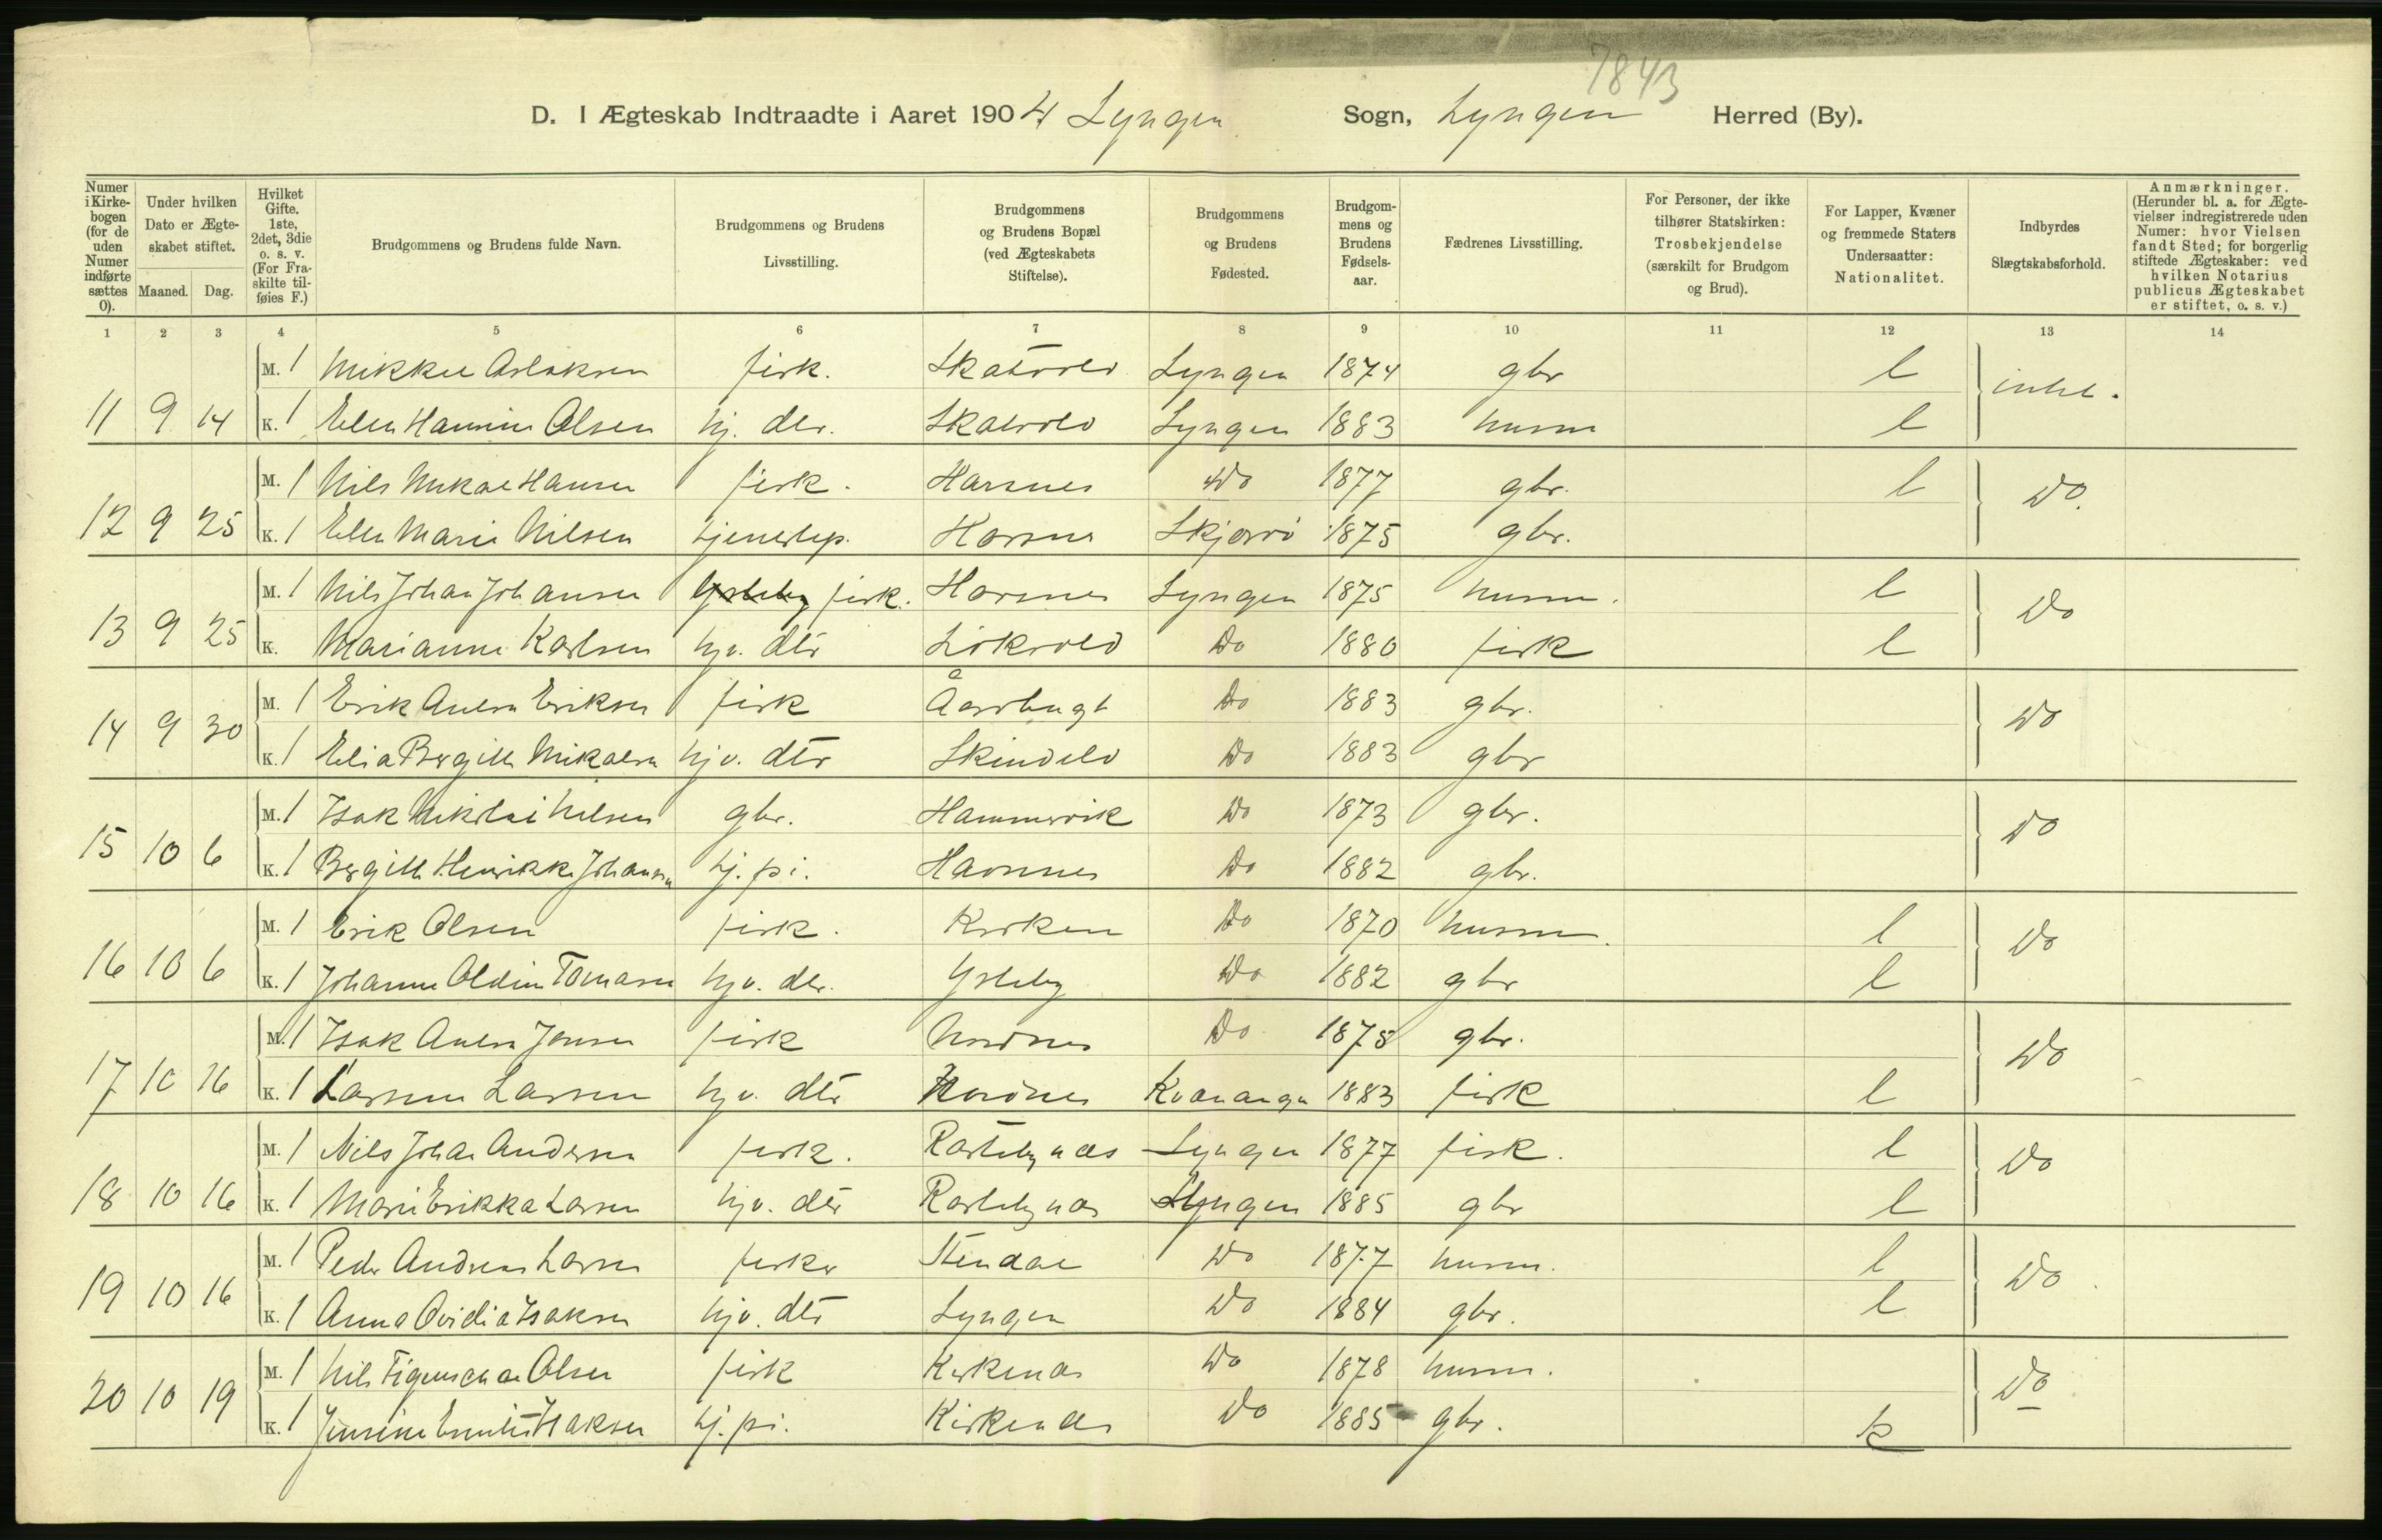 7843
D. I Ægteskab Indtraadte i Aaret 1904 Lyngen Sogn, Lyngen Herred (By).
Numer i Kirke-bogen (for de uden Numer indførte sættes 0). Under hvilken Dato er Ægte-skabet stiftet. Maaned. Dag. Hvilket Gifte. 1ste, 2det, 3die o. s. v. (For Fra-skilte til-føies F.) Brudgommens og Brudens fulde Navn. Brudgommens og Brudens Livsstilling. Brudgommens og Brudens Bopæl (ved Ægteskabets Stiftelse). Brudgommens og Brudens Fødested. Brudgom-mens og Brudens Fødsels-aar. Fædrenes Livsstilling. For Personer, der ikke tilhører Statskirken: Trosbekjendelse (særskilt for Brudgom og Brud). For Lapper, Kvæner og fremmede Staters Undersaatter: Nationalitet. Indbyrdes Slægtskabsforhold. Anmærkninger. (Herunder bl. a. for Ægte-vielser indregistrerede uden Numer: hvor Vielsen fandt Sted; for borgerlig stiftede Ægteskaber: ved hvilken Notarius publicus Ægteskabet er stiftet, o. s. v.)
1 2 3 4 5 6 7 8 9 10 11 12 13 14
M. 1 Mikkel Aslaksen fisk. Skatvold Lyngen 1874 gbr l
11 9 14 K. 1 Elen Hannine Olsen hj. dtr. Skatvold Lyngen 1883 husm l
M. 1 Nils Mikal Hansen fisk. Havnnes Do 1877 gbr. l Do
12 9 25 K. 1 Elen Marie Nilsen tjenestep. Havnnes Skjervö 1875 gbr.
M. 1 Nils Johan Johansen fisk. Havnnes Lyngen 1875 husm. l Do
13 9 25 K. Marianne Karlsen hjv. dtr Do 1880 fisk l
M. 1 Erik Eriksen fisk Do 1883 gbr. Do
14 9 30 K. 1 Elia Bergitte Mikalsen hjv. dtr Skindelv Do 1883 gbr
M. 1 Isak Nikolai Nilsen gbr. Hammervik Do 1873 gbr. Do
15 10 6 K. 1 Bergitte Henrikke Johansen tj. pi. Havnnes Do 1882 gbr.
M. 1 Erik Olsen fisk. Do 1870 husm. l Do
16 10 6 K. 1 Johanne Oldine Tomasen hjv. dtr. Do 1882 gbr l
M. 1 Isak Jensen fisk Nordnes Do 1878 gbr. Do
17 10 16 K. 1 Larsen hjv. dtr Nordnes Kvænangen 1883 fisk l
M. 1 Nils Johan Andersen fisk. Rastebynæs Lyngen 1877 fisk. l Do
18 10 16 K. 1 Marie Erikka Larsen hjv. dtr Rastebynæs Lyngen 1885 gbr l
M. 1 Peder Andreas Larsen fisker Stendal Do 1877 husm. l Do
19 10 16 K. 1 Anna Ovidia Isaksen hjv. dtr Lyngen Do 1884 gbr. l
M. 1 Nils Olsen fisk Kirkenæs Do 1878 husm. Do
20 10 19 K. 1 Jensine Isaksen tj. pi. Kirkenæs Do 1885 gbr. k